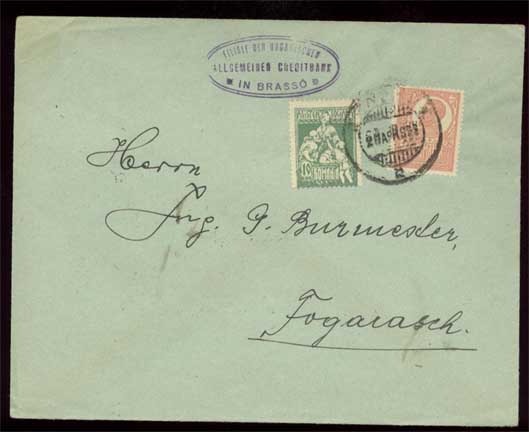 FILIALE DER UNGARISCHEN
ALLGEMEINEN CREDITBANK
IN BRASSÓ
10
ROMANIA
Herrn
Ing. P. Burmester,
Fogarasch.